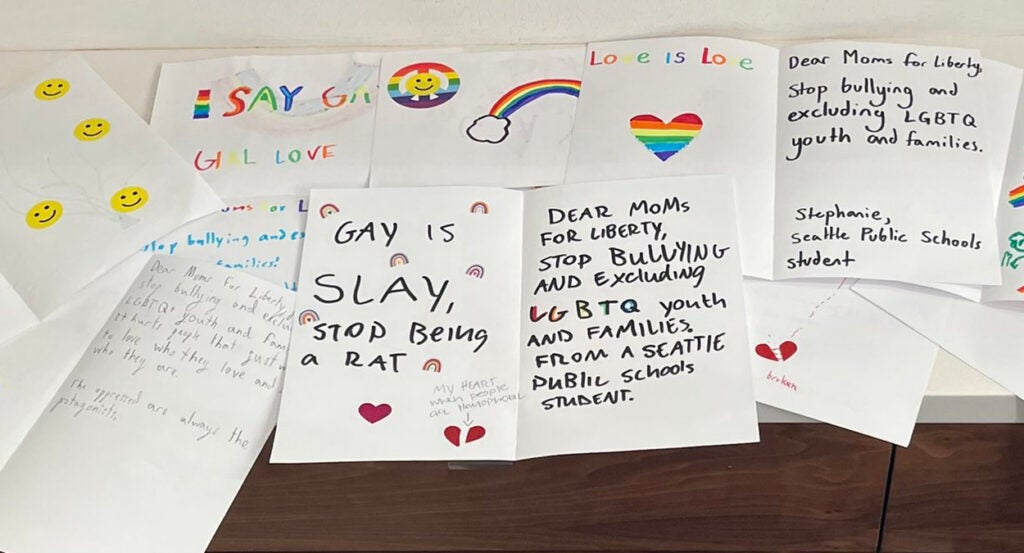 I SAY GA
GIRL LOVE
Love is Love
Dear Moms for Liberty,
Stop bullying and
excluding LGBTQ
youth and families.
Stephanie,
Seattle Public Schools
student
ms for L
stop bullying and ex
families!
Dear Moms For Liberty,
stop bullying and
LGBTQ+ youth and
It hurts people that just
to love who they love and
who they are.
The oppressed are always the
GAY IS
SLAY,
STOP Being
a RAT
MY HEART
when people
are Homophobic
DEAR MOMS
FOR LIBERTY,
STOP BULLYING
AND EXCLUDING
LGBTQ youth
AND FAMILIES.
FROM A SEATTLE
PUBLIC SCHOOLS
STUDENT.
broken